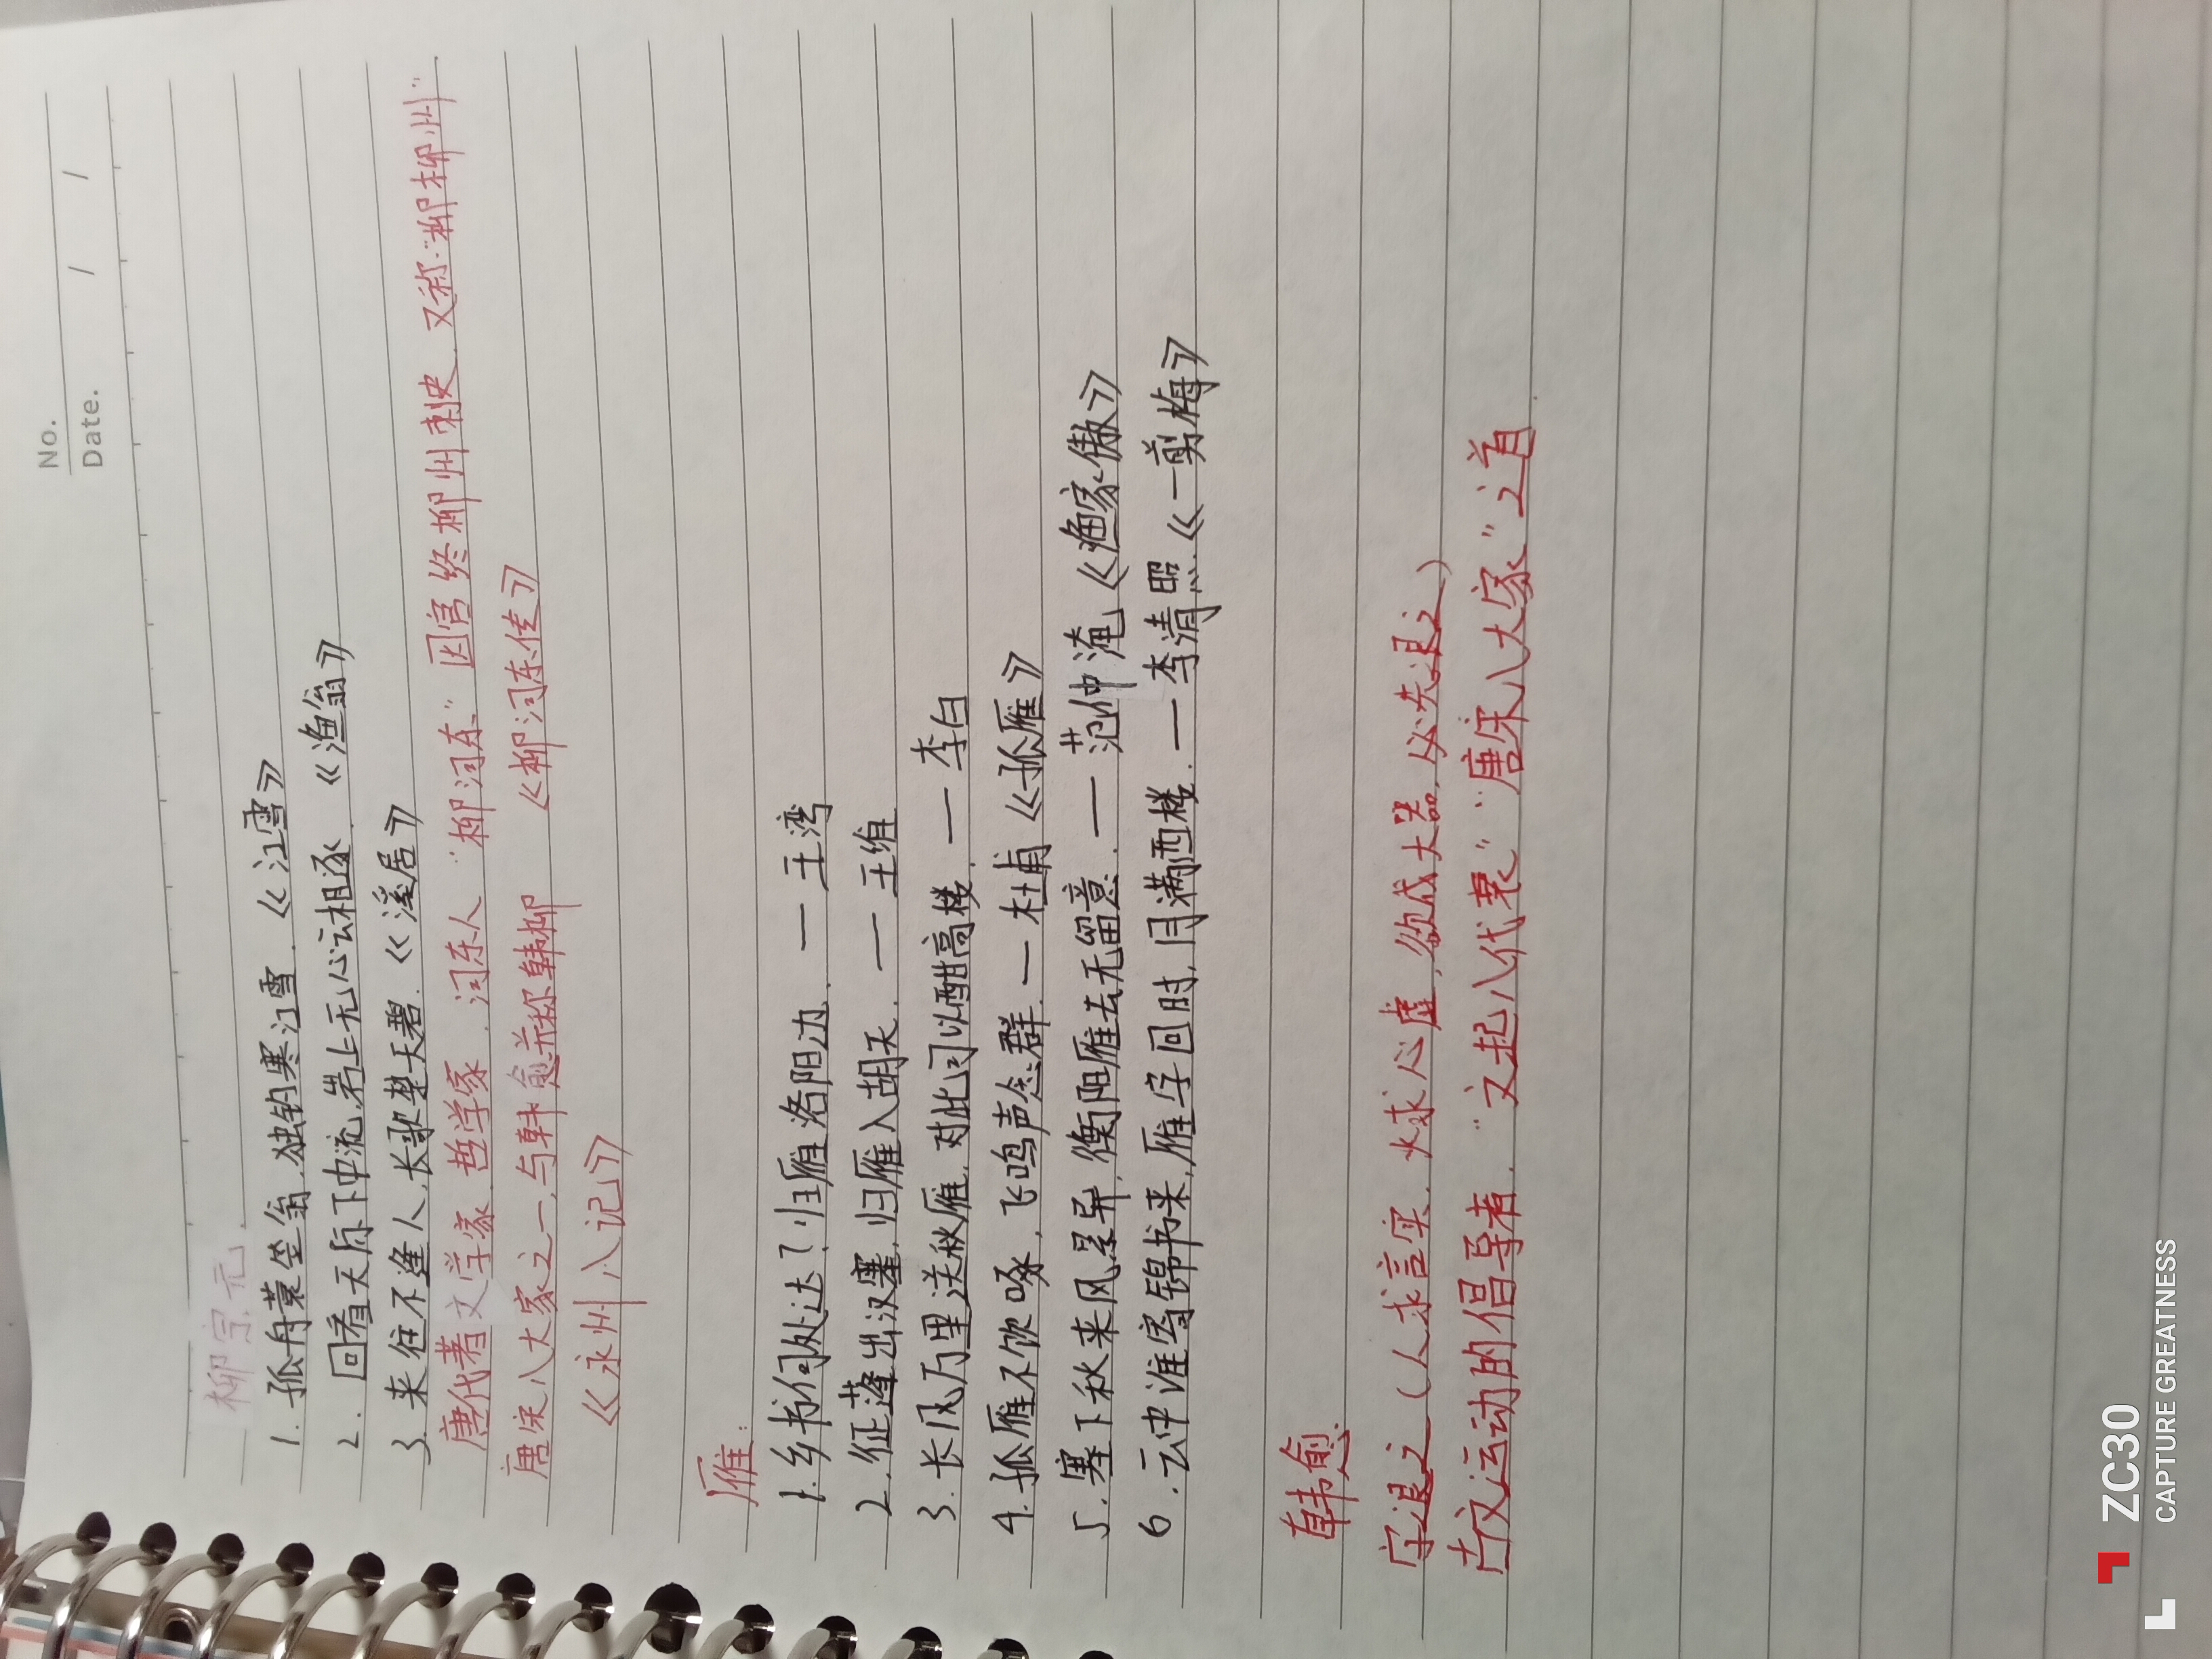 No.
Date. / /
柳宗元
1. 孤舟蓑笠翁,独钓寒江雪.《江雪》
2. 回看天际下中流,岩上无心云相逐.《渔翁》
3. 来往不逢人,长歌楚天碧.《溪居》
唐代著文学家,哲学家,河东人“柳河东”因官终柳州刺史.又称“柳柳州”.
唐宋八大家之一,与韩愈并称韩柳 《柳河东传》
《永州八记》
雁:
1.乡书何处达?归雁洛阳边. — 王湾
2.征蓬出汉塞,归雁入胡天. — 王维
3.长风万里送秋雁,对此可以酣高楼. — 李白
4.孤雁不饮啄,飞鸣声念群. — 杜甫《孤雁》
5.塞下秋来风景异,衡阳雁去无留意. — 范仲淹《渔家傲》
6.云中谁寄锦书来,雁字回时,月满西楼. — 李清照.《一剪梅》
韩愈:
字退之(人求言实.火求心虚,欲成大器,必先退之)
古文运动的倡导者.“文起八代衰”“唐宋八大家”之首.
ZC30
CAPTURE GREATNESS